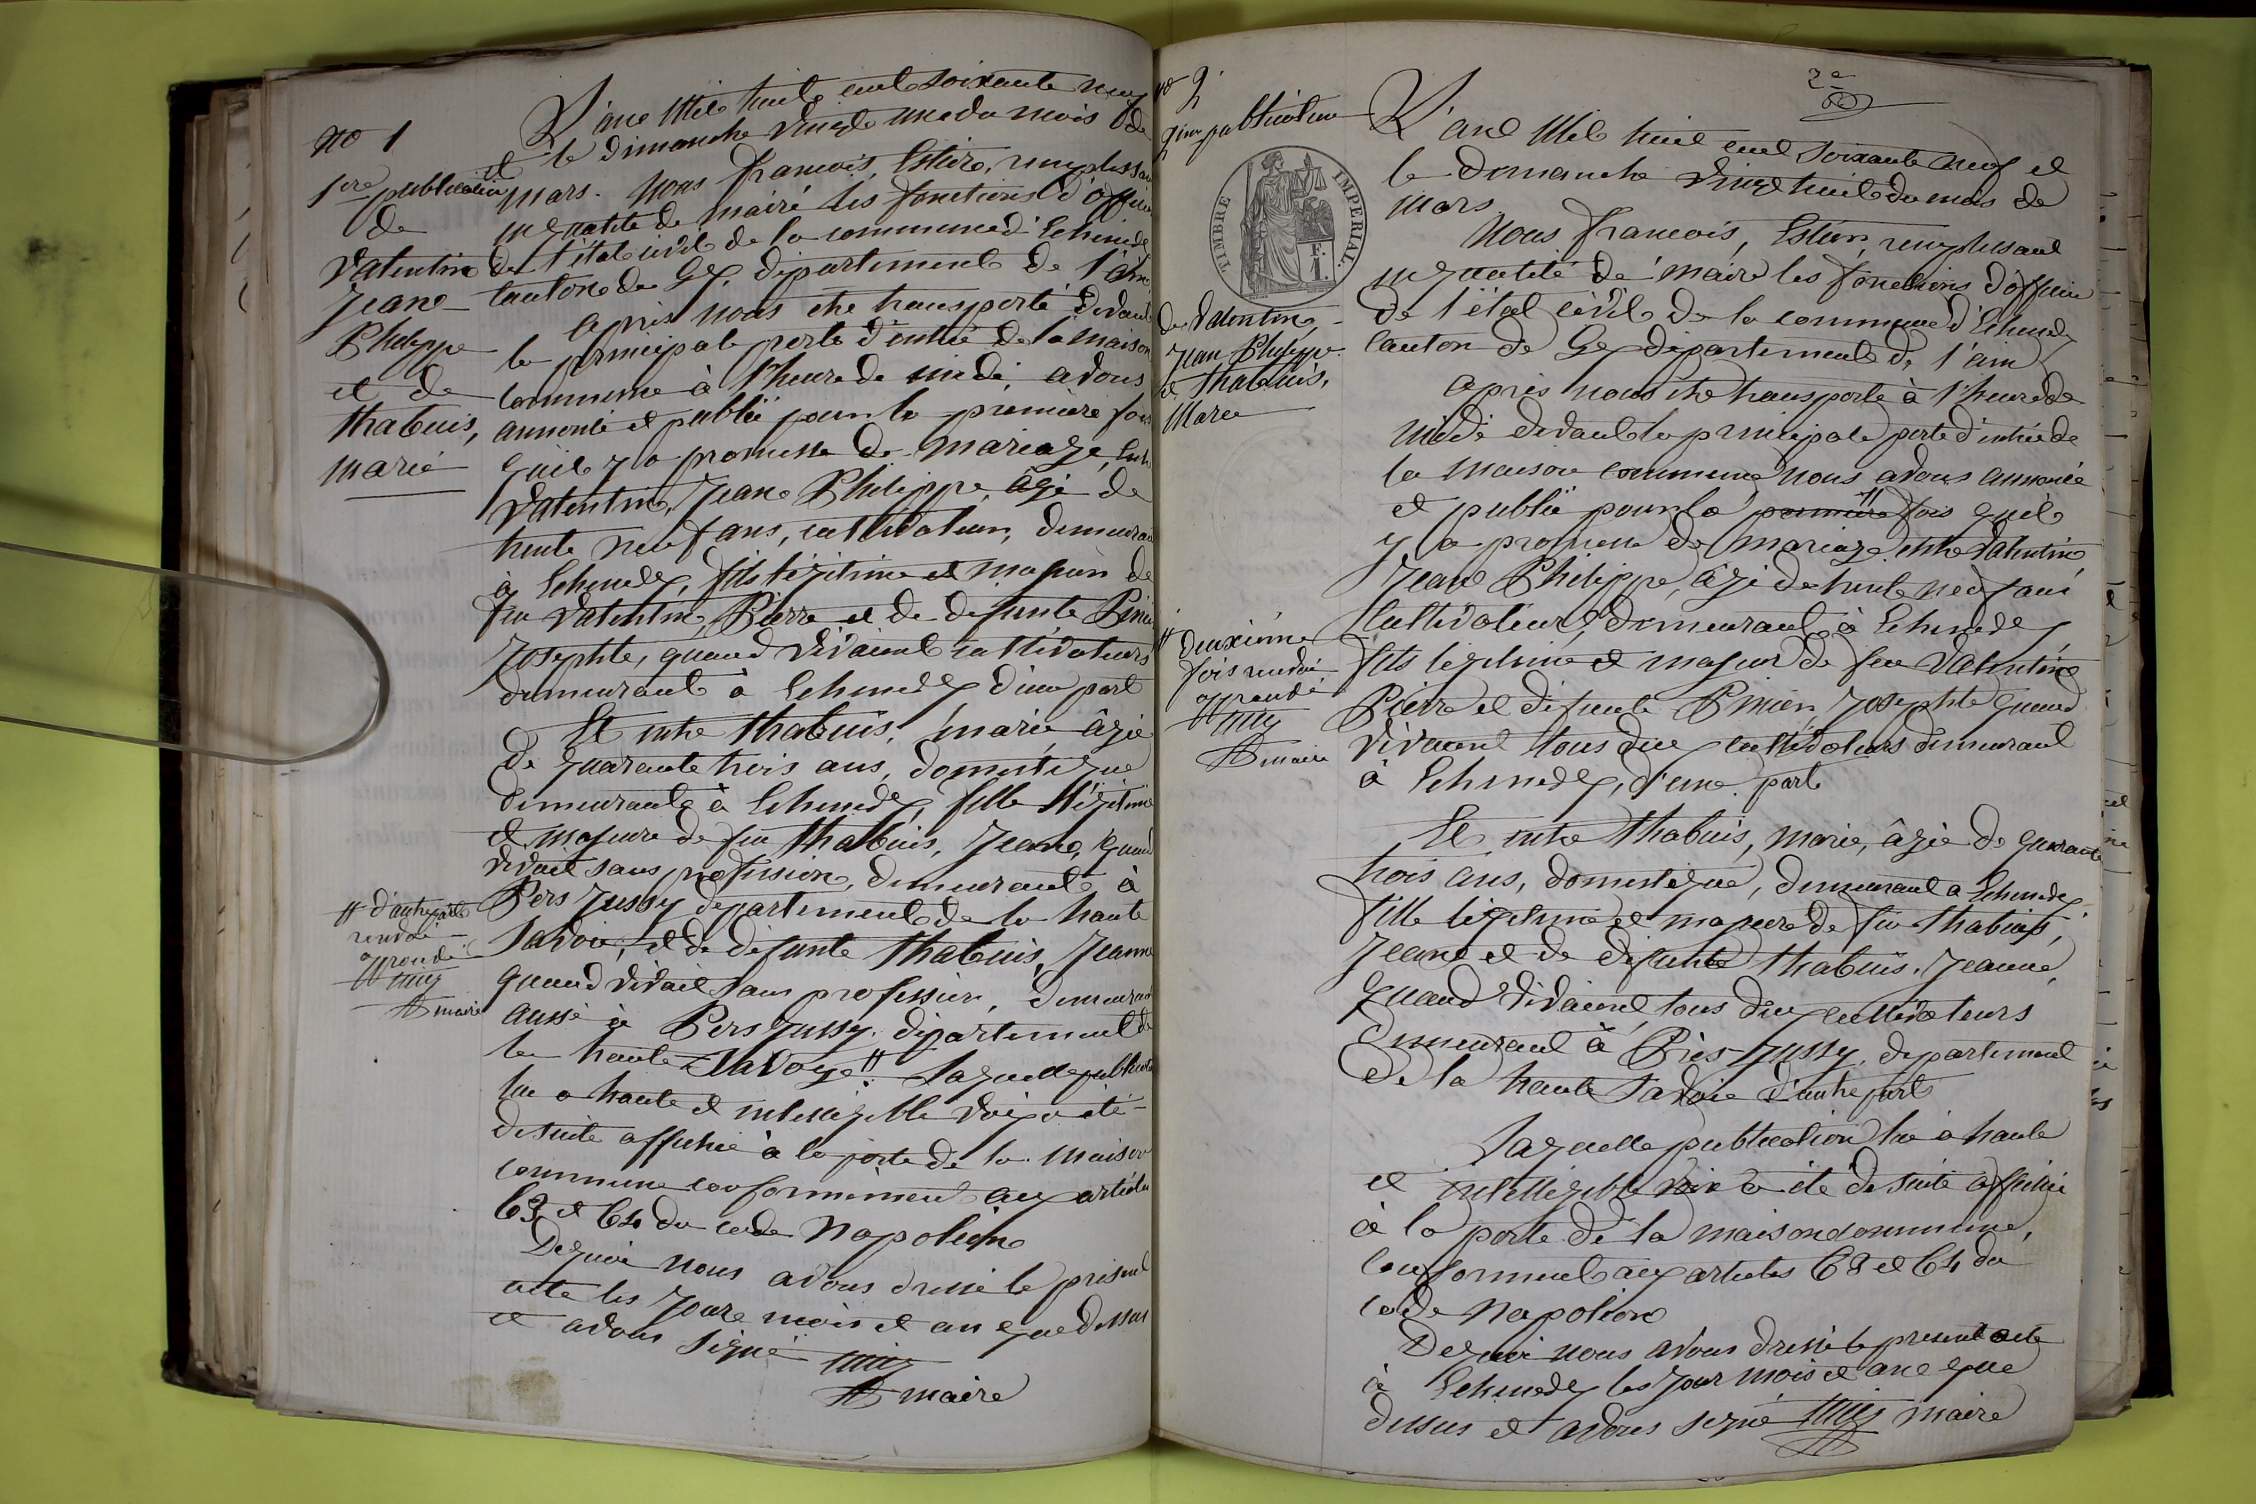 no 1
1ère publication
de
Valentin
Jean
Philippe
et de
thabuis,
marie
L'an Mil huit cent soixante neuf
et le dimanche vingt un du mois de
mars. Nous François, remplissant
en qualité de maire les fonctions d'officier
de l'état civil de la commune d'Echenevex
canton de Gex, département de l'ain
après nous être transporté devant
la principale porte d'entrée de la maison
commune à l'heure de midi, avons
annoncé et publié pour la première fois
qu'il y a promesse de mariage, entre
Valentin, Jean Philippe âgé de
trente neuf ans, cultivateur, demeurant
à Echenevex, fils légitime et majeur de
feu Valentin, Pierre et de defunte
Josephte, quand vivaient cultivateurs
demeurant à Echenevex d'une part
Et entre thabuis, marie âgée
de quarante trois ans, domestique
demeurant à Echenevex, fille légitime
et majeure de feu thabuis, Jean, quand
vivait sans profession, demeurant à
Pers Jussy département de la haute
Savoie, et de defunte thabuis, Jeanne
quand vivait sans profession, demeurant
aussi à Pers Jussy. département de
la haute Savoye # Laquelle publication
lue a haute et intelligible voix a été
de suite affichée à la porte de la maison
commune conformément aux articles
63 et 64 du code Napoléon
De quoi nous avons dressé le présent
acte les jour mois et an que dessus
et avons signé
maire
# d'autre part
renvoi
approuvé
maire
no 2
2ème publication
TIMBRE IMPERIAL.
F.
1.
de Valentin,
Jean Philippe
et thabuis,
Marie
2e
L'an Mil huit cent soixante neuf et
le Dimanche vingt huit du mois de
mars
Nous François, remplissant
en qualité de maire les fonctions d'officier
de l'état civil de la commune d'Echenevex
canton de Gex département de l'ain
après nous être transporté à l'heure de
midi devant la principale porte d'entrée de
la maison commune nous avons annoncé
et publié pour la première # fois qu'il
y a promesse de mariage entre Valentin,
Jean Philippe, âgé de trente neuf ans
cultivateur, demeurant à Echenevex
fils légitime et majeur de feu Valentin
Pierre et defunte Josephte quand
vivaient tous deux cultivateurs demeurant
à Echenevex, d'une part
Et entre thabuis, marie, âgée de quarante
trois ans, domestique, demeurant a Echenevex,
fille légitime et majeure de feu thabuis,
Jean et de defunte thabuis. Jeanne,
quand vivaient, tous deux cultivateurs
demeurant à Pers-Jussy, département
de la haute Savoie d'autre part
Laquelle publication lue à haute
et intelligible voix a été de suite affichée
à la porte de la maison commune,
conforment aux articles 63 et 64 du
code Napoléon
De quoi nous avons dressé le présent acte
à Echenevex les jour mois et an que
dessus et avons signé maire
# deuxième
fois renvoi
approuvé
maire